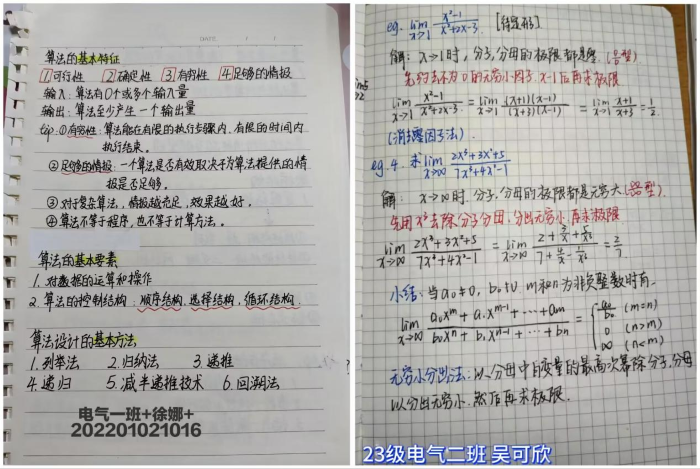 算法的基本特征
1 可行性 2 确定性 3 有穷性 4 足够的情报
输入:算法有0个或多个输入量
输出:算法至少产生一个输出量
tip:①有穷性:算法能在有限的执行步骤内、有限的时间内
执行结束。
②足够的情报:一个算法是否有效取决于为算法提供的情
报是否足够。
③对于复杂算法,情报越充足,效果越好。
④算法不等于程序,也不等于计算方法。
算法的基本要素
1. 对数据的运算和操作
2. 算法的控制结构:顺序结构、选择结构、循环结构.
算法设计的基本方法
1. 列举法 2. 归纳法 3. 递推
4. 递归 5. 减半递推技术 6. 回溯法
电气一班+徐娜+
202201021016
eg. lim x→1 (x²-1)/(x²+2x-3)
解:x→1时,分子,分母的极限都是零
先约去不为0的无穷小因子x-1后再求极限
lim x→1 (x²-1)/(x²+2x-3) = lim x→1 (x+1)(x-1)/(x+3)(x-1) = lim x→1 (x+1)/(x+3) = 1/2
(消去零因子法)
eg.4. 求 lim x→∞ (2x³+3x²+5)/(7x³+4x²-1)
解:x→∞时,分子,分母的极限都是无穷大
先用x³去除分子分母,分出无穷小,再求极限
lim x→∞ (2x³+3x²+5)/(7x³+4x²-1) = lim x→∞ (2+3/x+5/x³)/(7+4/x-1/x³) = 2/7
小结:当a₀≠0,b₀≠0 m和n为非负整数时有
lim x→∞ (a₀xᵐ+a₁xᵐ⁻¹+…+aₘ)/(b₀xⁿ+b₁xⁿ⁻¹+…+bₙ) = { a₀/b₀ (m=n)
0 (n>m)
∞ (n<m)
无穷小分出法:以分母中自变量的最高次幂除分子,分母
以分出无穷小,然后再求极限.
23级电气二班 吴可欣